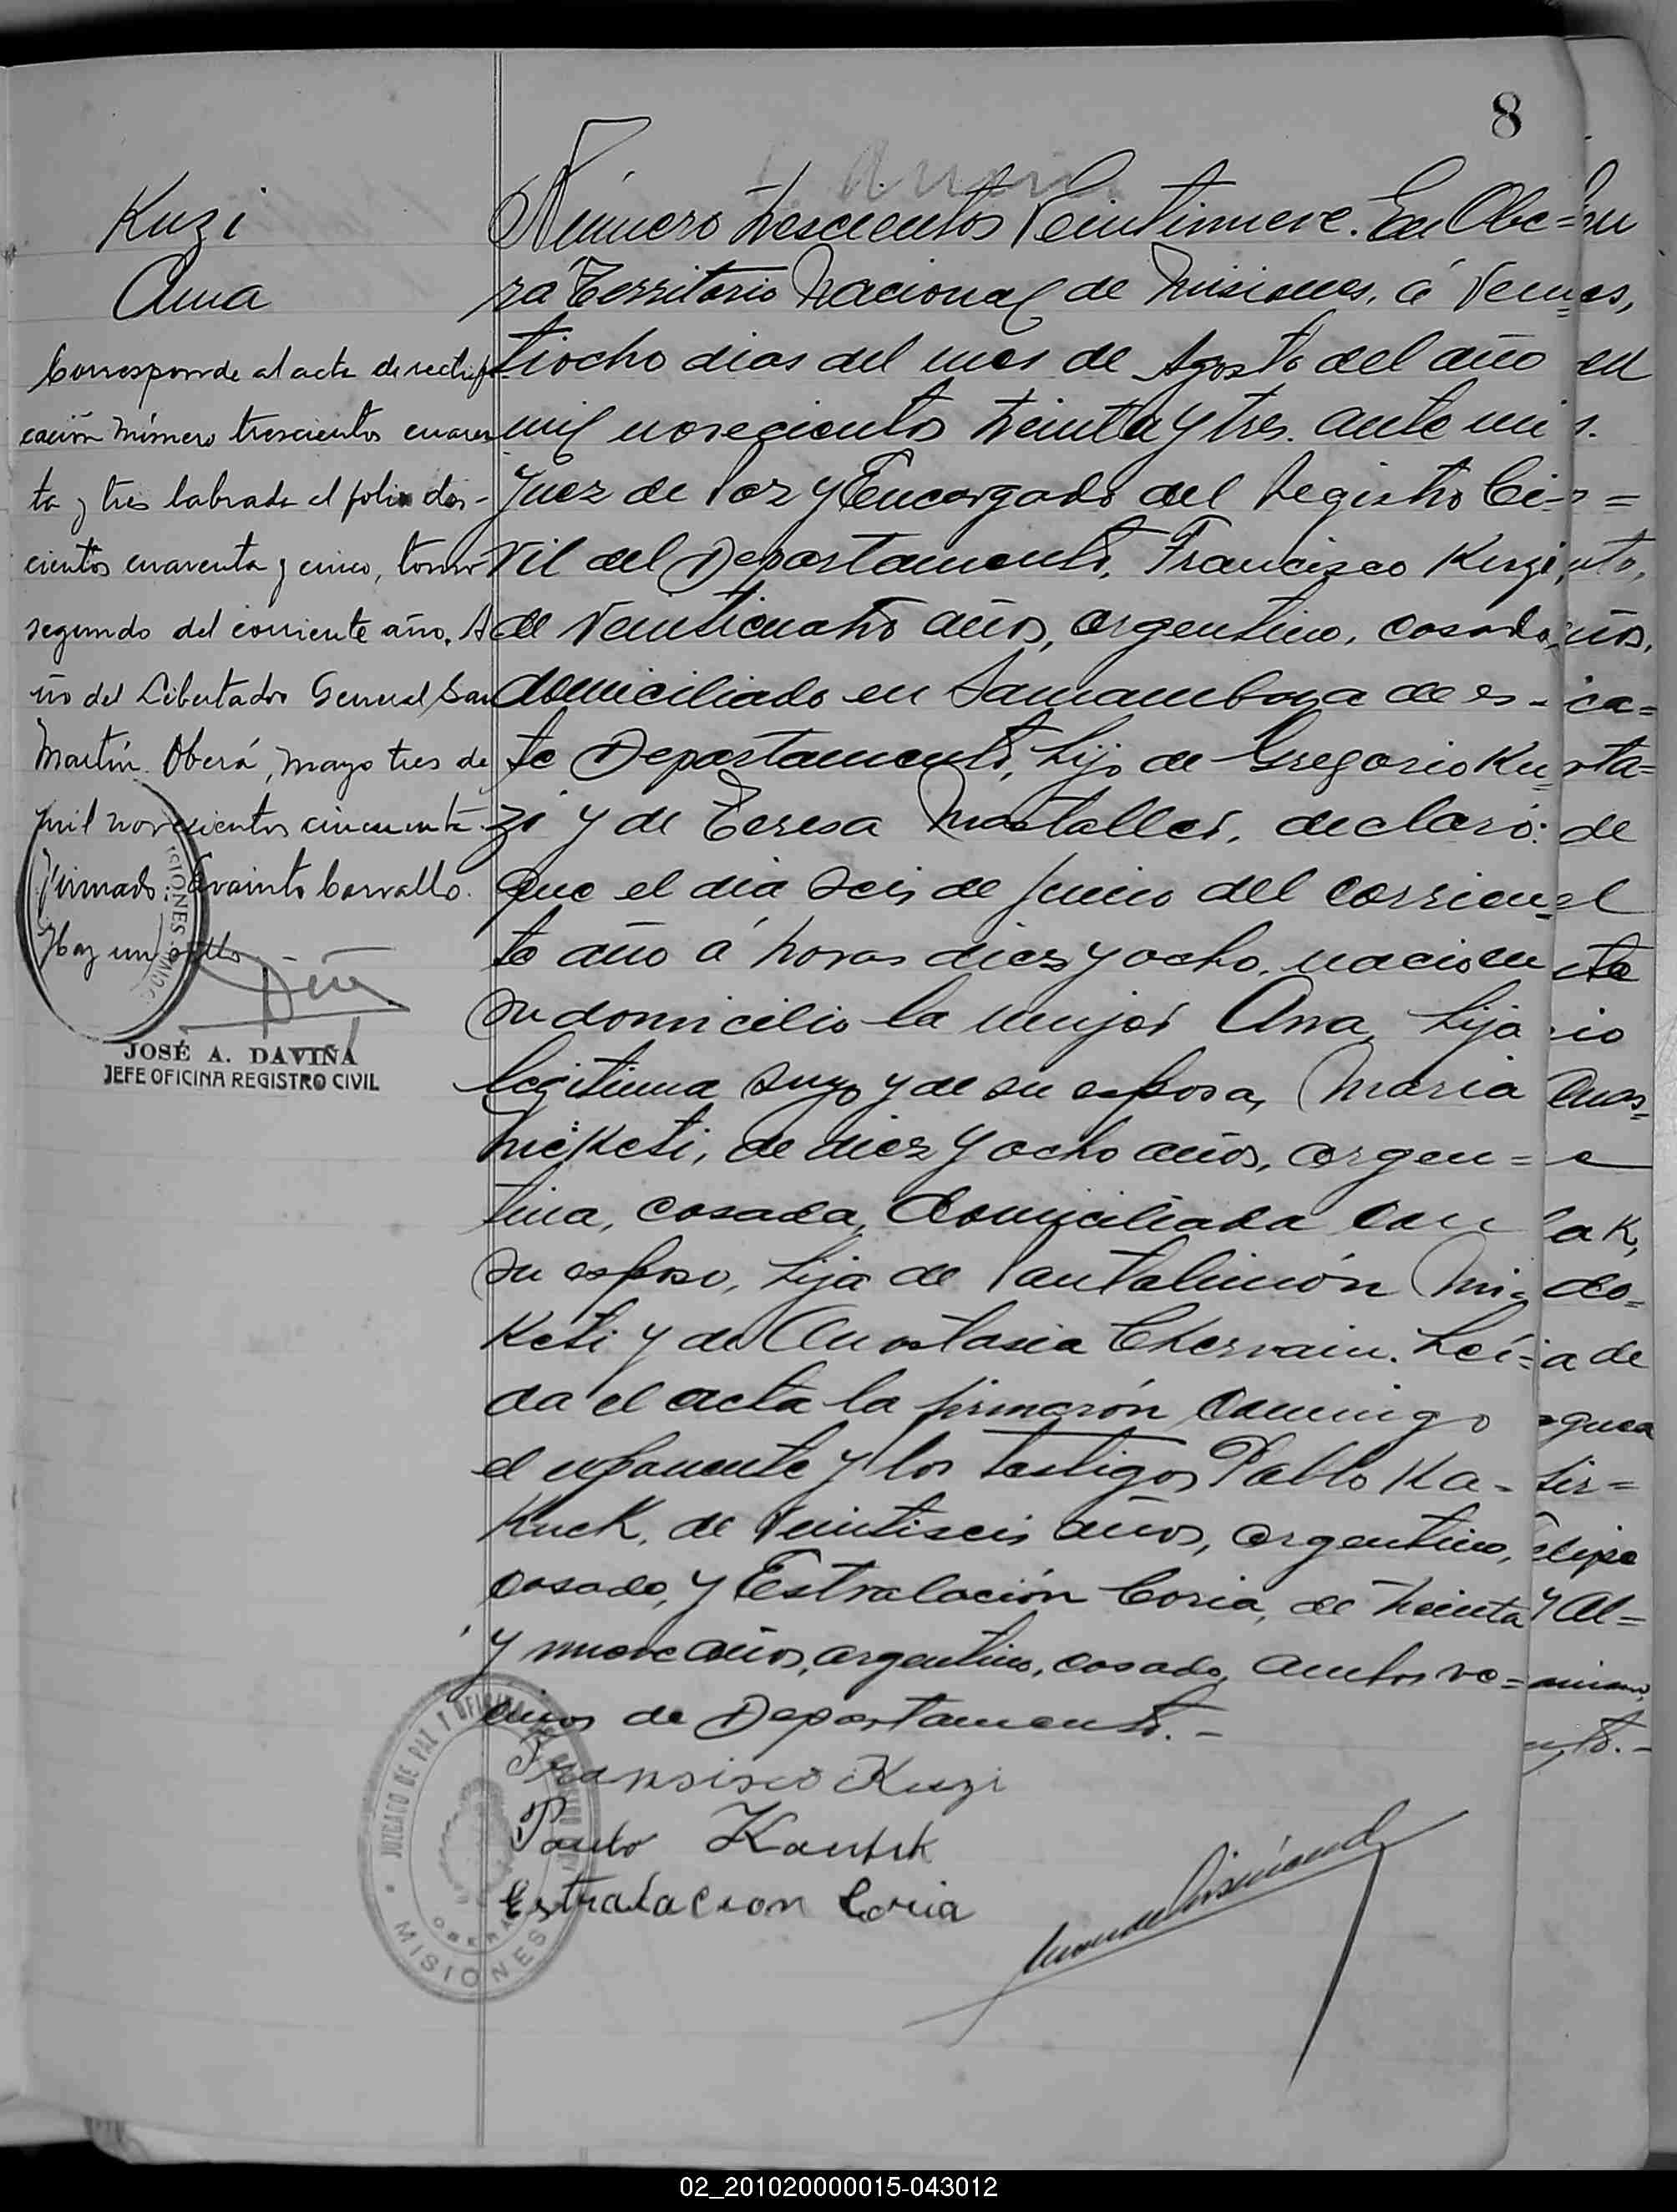 8
Kuzi
Ana
Corresponde al acta de rectifi-
cación número trescientos cuaren
ta y tres labrada al folio dos-
cientos cuarenta y cinco, tomo
segundo del corriente año. A
ño del Libertador General San
Martín. Oberá, mayo tres de
mil novecientos cincuenta
Firmado: Carvallo.
Hay un sello
JOSÉ A. DAVIÑA
JEFE OFICINA REGISTRO CIVIL
Número trescientos veintinueve. En Obe=
rá Territorio Nacional de Misiones, á vein=
tiocho dias del mes de Agosto del año
mil novecientos treinta y tres. ante mi
Juez de Paz y Encargado del Registro Ci-
vil del Departamento, Francisco Kuzi,
de veinticuatro años, argentino, casado,
domiciliado en Samambaya de es-
te Departamento, hijo de Gregorio Ku=
zi y de Teresa declaró:
Que el dia seis de Junio del corrien=
te año á horas diez y ocho, nacio en
su domicilio la mujer Ana, hija
legitima suya y de su esposa, Maria
Miketi, de diez y ocho años, argen=
tina, casada, domiciliada con
su esposo, hija de Pantalimón Mi=
keti y de Anastasia Chervain. Leí=
da el acta la firmarón conmigo
el exponente y los testigos Pablo Ka-
Kuck, de veintiseis años, argentino,
casado, y Estralación Coria, de treinta
y nueve años, argentino, casado, ambos ve=
cinos de Departamento.-
Fransisco Kuzi
Paulo
Estralacion Coria
JUZGADO DE PAZ Y OFICINA
OBERA
MISIONES
02_201020000015-043012